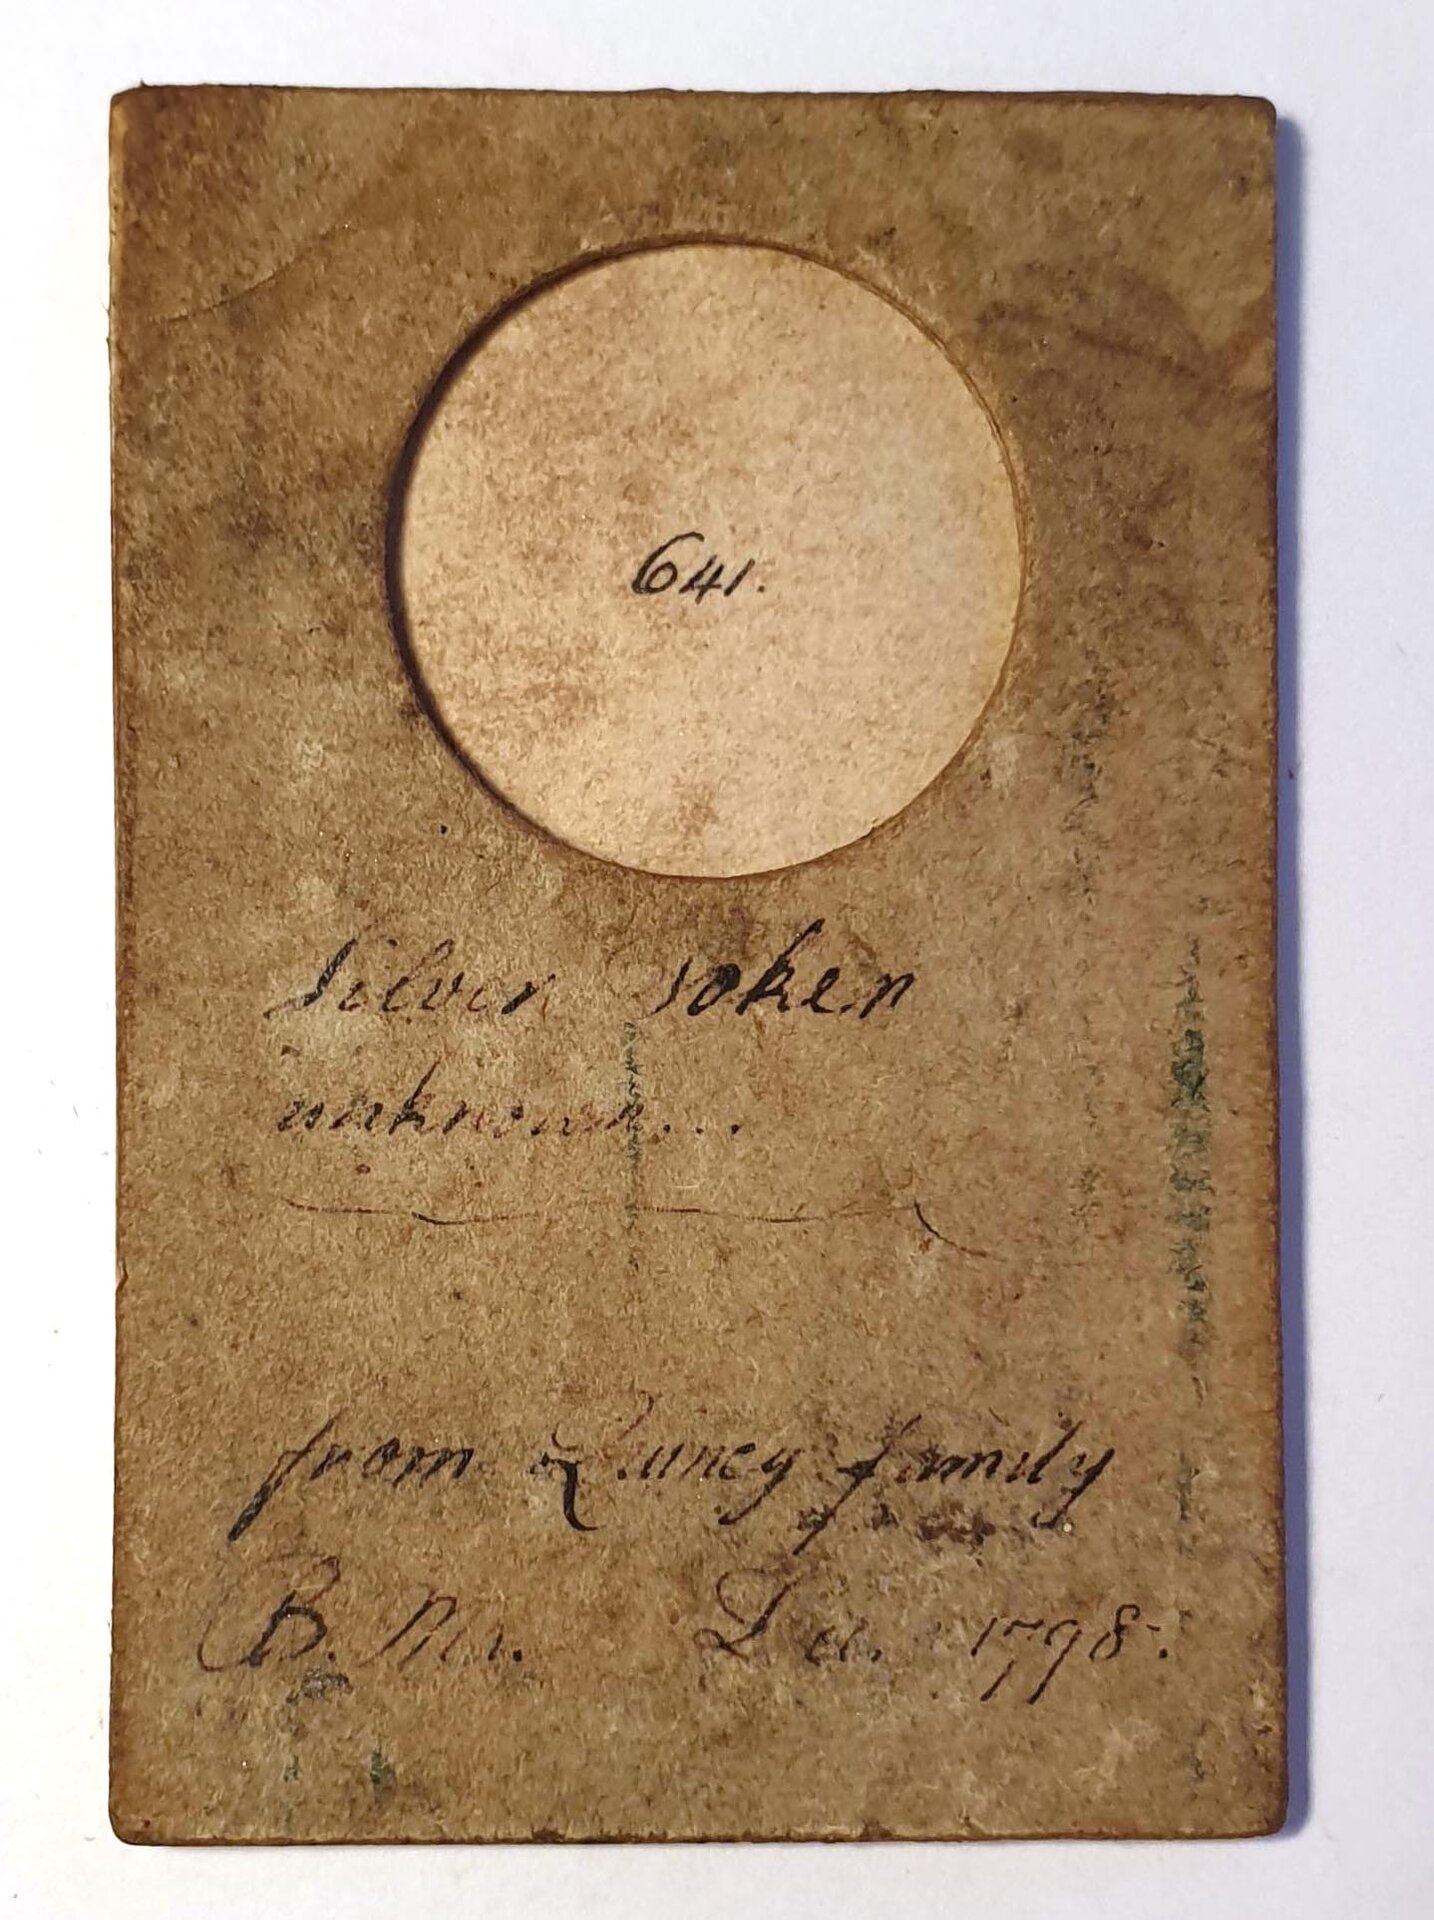 641.
Silver Token
unknown...
from Quncy family
B. Ma. La. 1798.